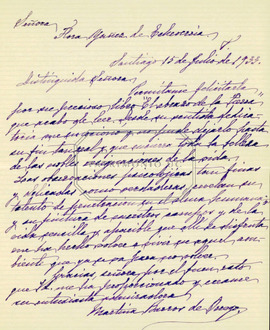 Señora
Flora Yañez de Echeverría
Santiago 15 de Julio de 1933.
Distinguida Señora
Permítame felicitarla
por su precioso libro "El abrazo de la tierra"
que acabo de leer. Desde su sentida dedica-
toria me y no pude dejarlo hasta
su fin tan real y que encierra toda la belleza
de las nobles de la vida.
Las observaciones psicológicas tan finas
y delicadas como verdaderas revelan su
talento de penetración en el alma humana
y su pintura de nuestros campos y de la
vida sencilla y apacible que allí se disfruta
me ha hecho volver a vivir en aquel am-
biente que ya se fue para no volver.
Gracias, señora, por el buen rato
que Ud. me ha proporcionado y créame
su entusiasta admiradora
Martina Barros de Orrego